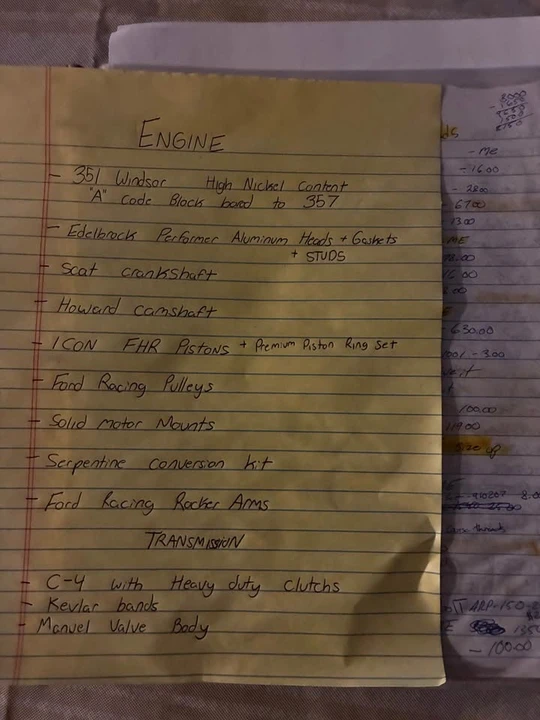 ENGINE
- 351 Windsor High Nickel Content
"A" code Block bored to 357
- Edelbrock Performer Aluminum Heads + Gaskets
+ STUDS
- Scat crankshaft
- Howard camshaft
- ICON FHR Pistons + Premium Piston Ring Set
- Ford Racing Pulleys
- Solid motor Mounts
- Serpentine conversion kit
- Ford Racing Rocker Arms
TRANSMISSION
- C-4 with Heavy duty Clutchs
- Kevlar bands
- Manuel Valve Body
- ME
- 1600
- 2800
- 6700
1300
ME
- 630.00
- 3.00
100.00
ARP-150
- 100.00